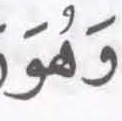 وَهُوَ